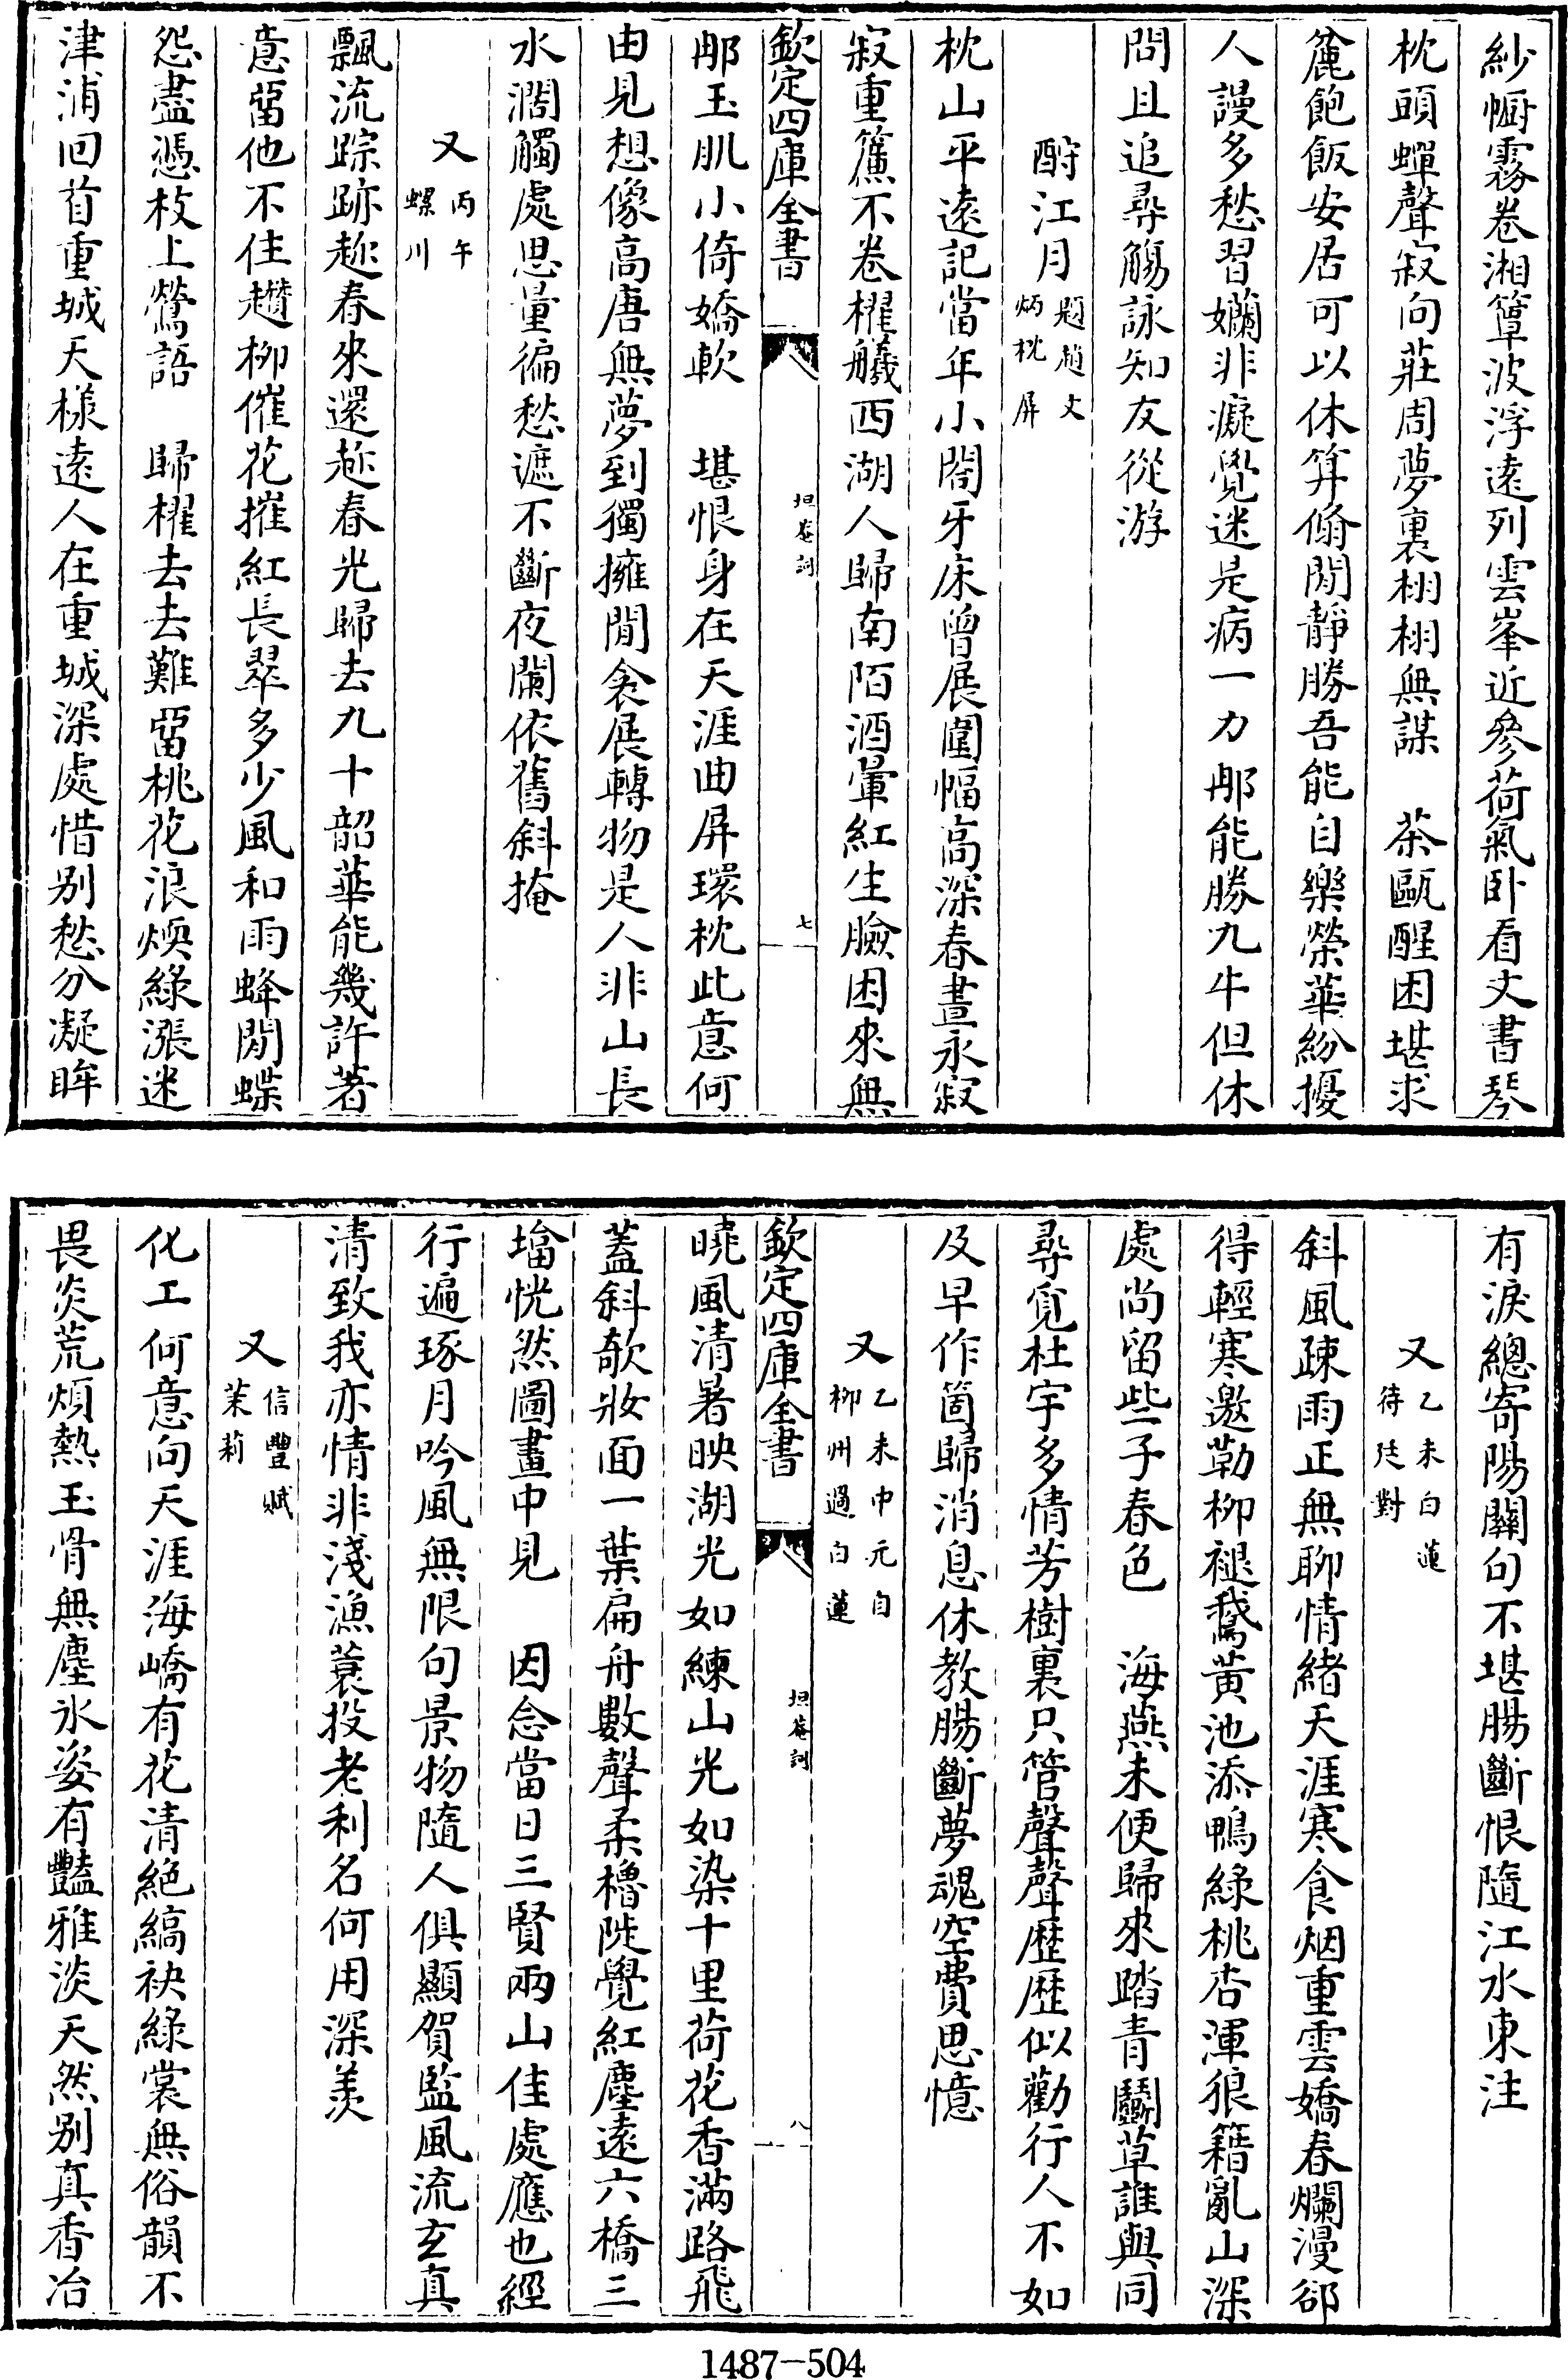 紗㡡霧卷湘簟波浮遠列雲峯近參荷氣卧看文書琴
枕頭蟬聲寂向莊周夢裏栩栩無謀　茶甌醒困堪求
麄飽飯安居可以休算偷閒靜勝吾能自樂榮華紛擾
人謾多愁習嬾非癡覺迷是病一力那能勝九牛但休
問且追尋觴詠知友從游
酹江月題趙文炳枕屏
枕山平遠記當年小閤牙床曾展圍幅高深春晝永寂
寂重簾不卷櫂艤西湖人歸南陌酒暈紅生臉困來無
欽定四庫全書　坦菴詞　七
那玉肌小倚嬌軟　堪恨身在天涯曲屏環枕此意何
由見想像高唐無夢到獨擁閒衾展轉物是人非山長
水濶觸處思量徧愁遮不斷夜闌依舊斜掩
又丙午螺川
飄流踪跡趂春來還趂春光歸去九十韶華能幾許著
意留他不住趲柳催花摧紅長翠多少風和雨蜂閒蝶
怨盡憑枝上鶯語　歸櫂去去難留桃花浪煖綠漲迷
津浦回首重城天樣遠人在重城深處惜别愁分凝眸
有淚總寄陽關句不堪腸斷恨隨江水東注
又乙未白蓮待廷對
斜風疎雨正無聊情緒天涯寒食烟重雲嬌春爛漫郤
得輕寒邀勒柳褪鵞黃池添鴨綠桃杏渾狼籍亂山深
處尚留些子春色　海燕未便歸來踏青鬭草誰與同
尋覓杜宇多情芳樹裏只管聲聲歷歷似勸行人不如
及早作箇歸消息休教腸斷夢魂空費思憶
又乙未中元自柳州過白蓮
欽定四庫全書　坦菴詞　八
曉風清暑映湖光如練山光如染十里荷花香滿路飛
蓋斜欹妝面一葉扁舟數聲柔櫓陡覺紅塵遠六橋三
墖恍然圖畫中見　因念當日三賢兩山佳處應也經
行遍琢月吟風無限句景物隨人俱顯賀監風流玄真
清致我亦情非淺漁蓑投老利名何用深羨
又信豐賦茉莉
化工何意向天涯海嶠有花清絶縞袂綠裳無俗韻不
畏炎荒煩熱玉骨無塵氷姿有豔雅淡天然别真香冶
1487-504